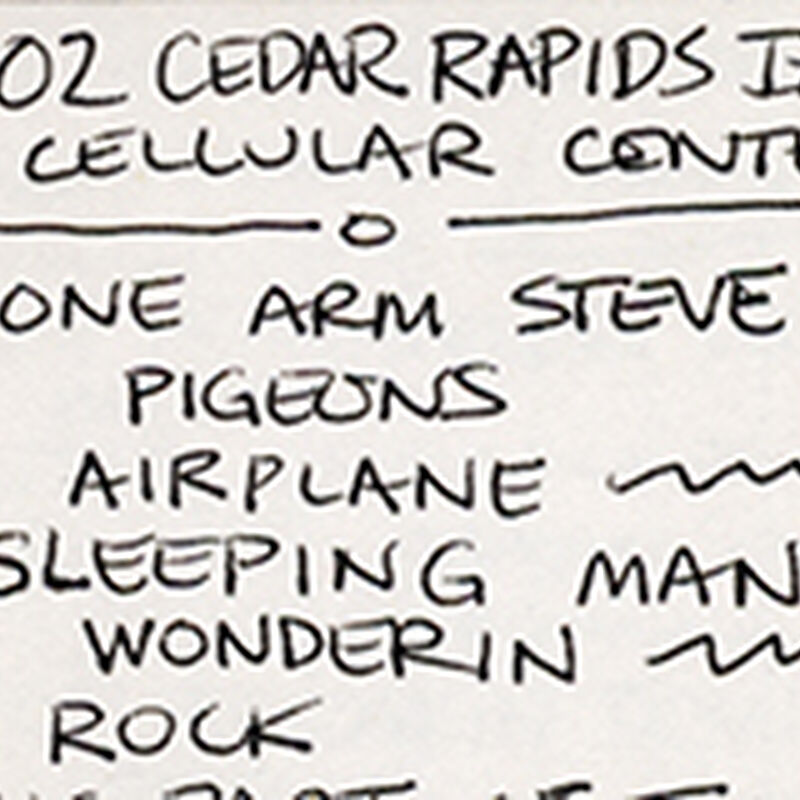 02 CEDAR RAPIDS I
CELLULAR CENT
ONE ARM STEVE
PIGEONS
AIRPLANE
SLEEPING MAN
WONDERIN
ROCK